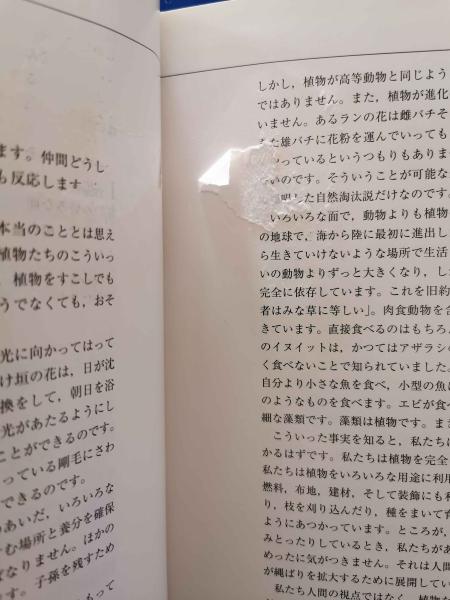 ます。仲間どうし
も反応します
本当のこととは思え
植物たちのこういっ
，植物をすこしでも
うでなくても，おそ
光に向かってはって
け垣の花は，日が沈
換をして，朝日を浴
光があたるようにし
ことができるのです。
っている剛毛にさわ
できるのです。
のあいだ，いろいろな
む場所と養分を確保
ばなりません。ほかの
す。子孫を残すため
もって
しかし，植物が高等動物と同じよう
ではありません。また，植物が進化
いません。あるランの花は雌バチそ
た雄バチに花粉を運んでいっても
っているというつもりもありま
いのです。そういうことが可能な
明した自然淘汰説だけなのです。
いろいろな面で，動物よりも植物
の地球で，海から陸に最初に進出し
ら生きていけないような場所で生活
いの動物よりずっと大きくなり，し
完全に依存しています。これを旧約
者はみな草に等しい」。肉食動物を含
きています。直接食べるのはもちろん
のイヌイットは，かつてはアザラシの
く食べないことで知られていました。
自分より小さな魚を食べ，小型の魚に
のようなものを食べます。エビが食べ
細な藻類です。藻類は植物です。ま
こういった事実を知ると，私たちに
かるはずです。私たちは植物を完全
私たちは植物をいろいろな用途に利用
燃料，布地，建材，そして装飾にも利
り，枝を刈り込んだり，種をまいて育
ようにあつかっています。ところが，
みとったりしているとき，私たちがあ
めったに気がつきません。それは人間
が縄ばりを拡大するために展開してい
私たち人間の視点ではなく，植物